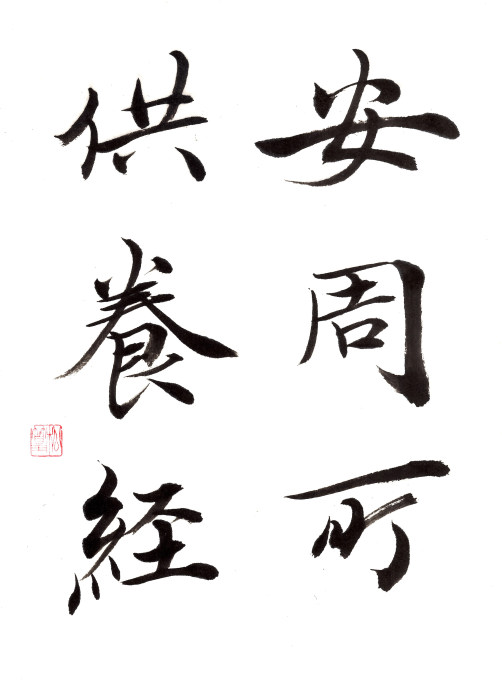 安周所
供養経